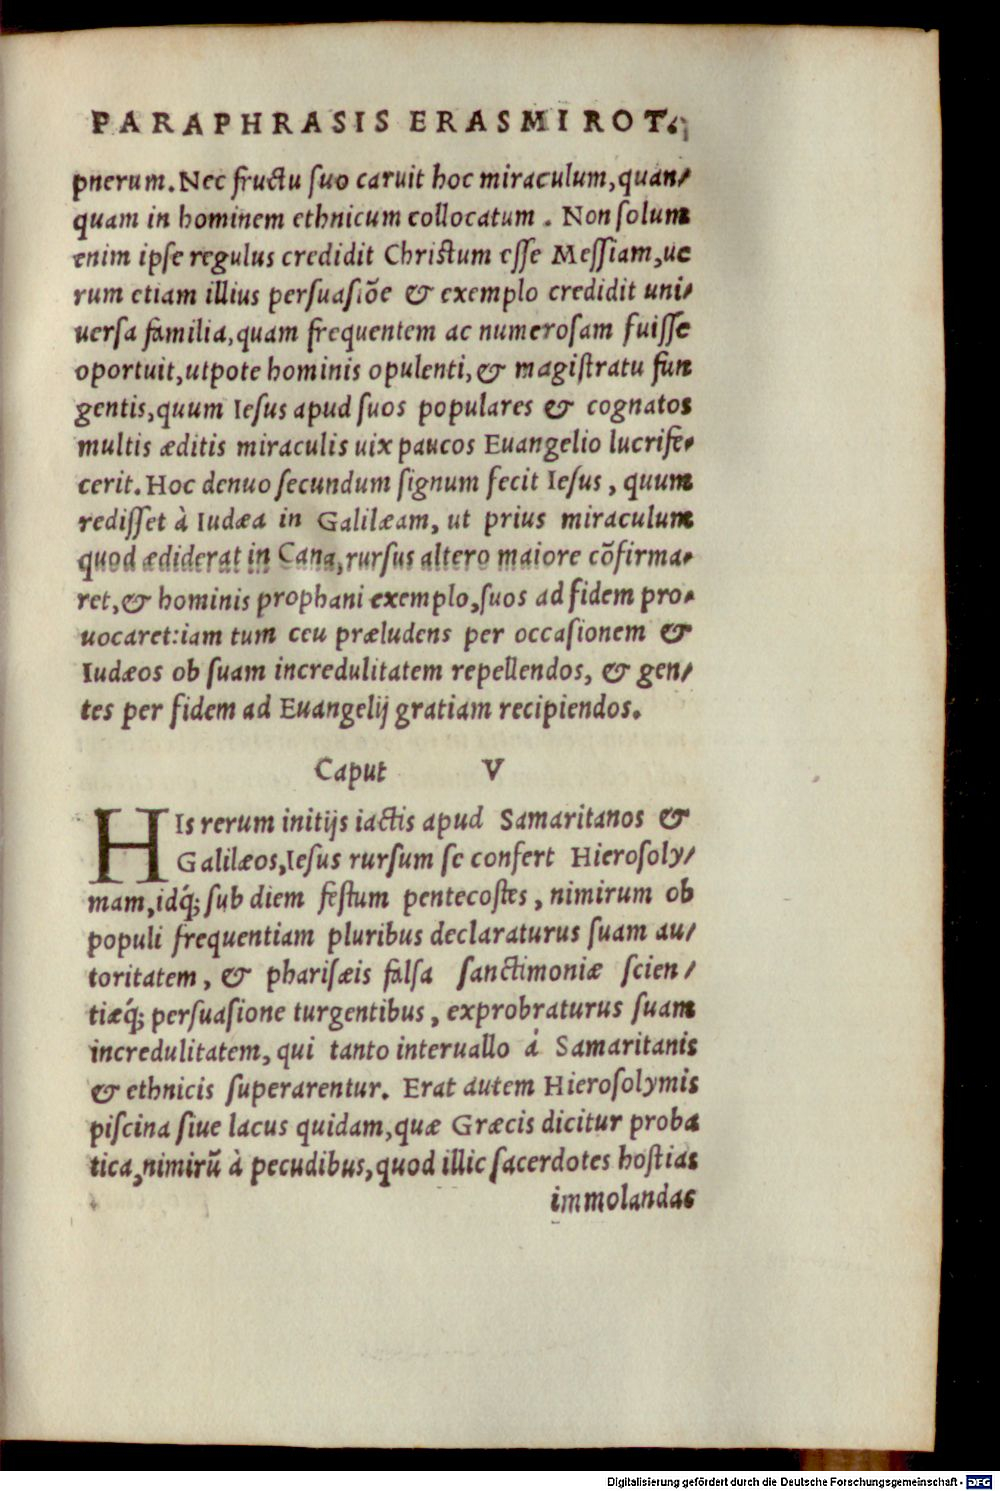 PARAPHRASIS ERASMI ROT.
pnerum. Nec fructu suo caruit hoc miraculum, quan/
quam in hominem ethnicum collocatum . Non solum
enim ipse regulus credidit Christum esse Messiam, ue
rum etiam illius persuasiõe & exemplo credidit uni/
uersa familia, quam frequentem ac numerosam fuisse
oportuit, utpote hominis opulenti, & magistratu fun
gentis, quum Iesus apud suos populares & cognatos
multis æditis miraculis uix paucos Euangelio lucrife/
cerit. Hoc denuo secundum signum fecit Iesus , quum
redisset à Iudæa in Galilæam, ut prius miraculum
quod ædiderat in Cana, rursus altero maiore cõfirma/
ret, & hominis prophani exemplo, suos ad fidem pro/
uocaret: iam tum ceu præludens per occasionem &
Iudæos ob suam incredulitatem repellendos, & gen/
tes per fidem ad Euangelij gratiam recipiendos.
Caput V
HIs rerum initijs iactis apud Samaritanos &
Galilæos, Iesus rursum se confert Hierosoly/
mam, idq́; sub diem festum pentecostes , nimirum ob
populi frequentiam pluribus declaraturus suam au/
toritatem , & pharisæis falsa sanctimoniæ scien/
tiæq́; persuasione turgentibus , exprobraturus suam
incredulitatem, qui tanto interuallo á Samaritanis
& ethnicis superarentur. Erat autem Hierosolymis
piscina siue lacus quidam, quæ Græcis dicitur proba
tica, nimirũ à pecudibus, quod illic sacerdotes hostias
immolandas
Digitalisierung gefördert durch die Deutsche Forschungsgemeinschaft - DFG